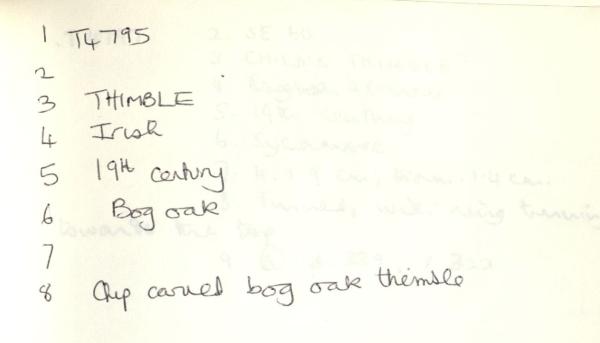 1 T4795
2
3 THIMBLE
4 Irish
5 19th century
6 Bog oak
7
8 Chip carved bog oak thimble